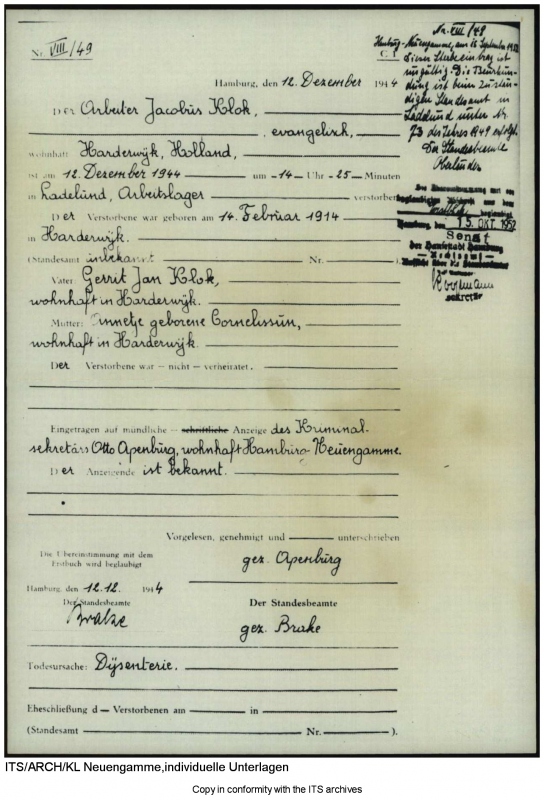 Nr. VIII/49
C 1
Nr. VIII/49
Hamburg-Neuengamme, am 15. September 1952
Dieser Sterbeeintrag ist
ungültig. Die Beurkun-
dung ist beim zustän-
digen Standesamt in
Ladelund unter Nr.
73 des Jahres 1949 erfolgt.
Der Standesbeamte
Hamburg, den 12. Dezember 1944
Der Arbeiter Jacobus Klok,
, evangelisch,
wohnhaft Harderwijk, Holland,
ist am 12. Dezember 1944 um -14- Uhr -25- Minuten
in Ladelund, Arbeitslager verstorben
Der Verstorbene war geboren am 14. Februar 1914
in Harderwijk.
(Standesamt unbekannt Nr. ).
Vater: Gerrit Jan Klok,
wohnhaft in Harderwijk.
Mutter: Annetje geborene Cornelissen,
wohnhaft in Harderwijk.
Der Verstorbene war – nicht – verheiratet.
Hamburg, den 15. OKT. 1952
Senat
der Hansestadt Hamburg
Rechtsamt
Aufsicht über die Standesämter
Sekretär
Eingetragen auf mündliche – schriftliche – Anzeige des Kriminal-
sekretärs Otto Apenburg, wohnhaft Hamburg-Neuengamme.
Der Anzeigende ist bekannt.
Vorgelesen, genehmigt und unterschrieben
gez. Apenburg
Die Übereinstimmung mit dem
Erstbuch wird beglaubigt
Hamburg, den 12.12. 1944
Der Standesbeamte
Brake
Der Standesbeamte
gez. Brake
Todesursache: Dysenterie.
Eheschließung d— Verstorbenen am in
(Standesamt Nr. ).
ITS/ARCH/KL Neuengamme,individuelle Unterlagen
Copy in conformity with the ITS archives